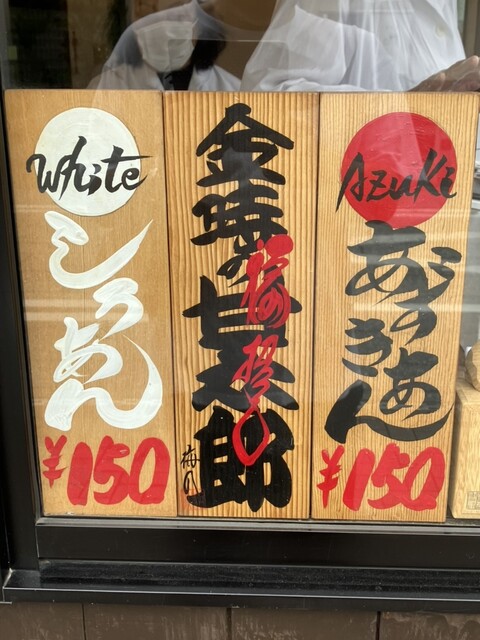 White
しろあん
¥150
金時の甘太郎
Azuki
あづきあん
¥150